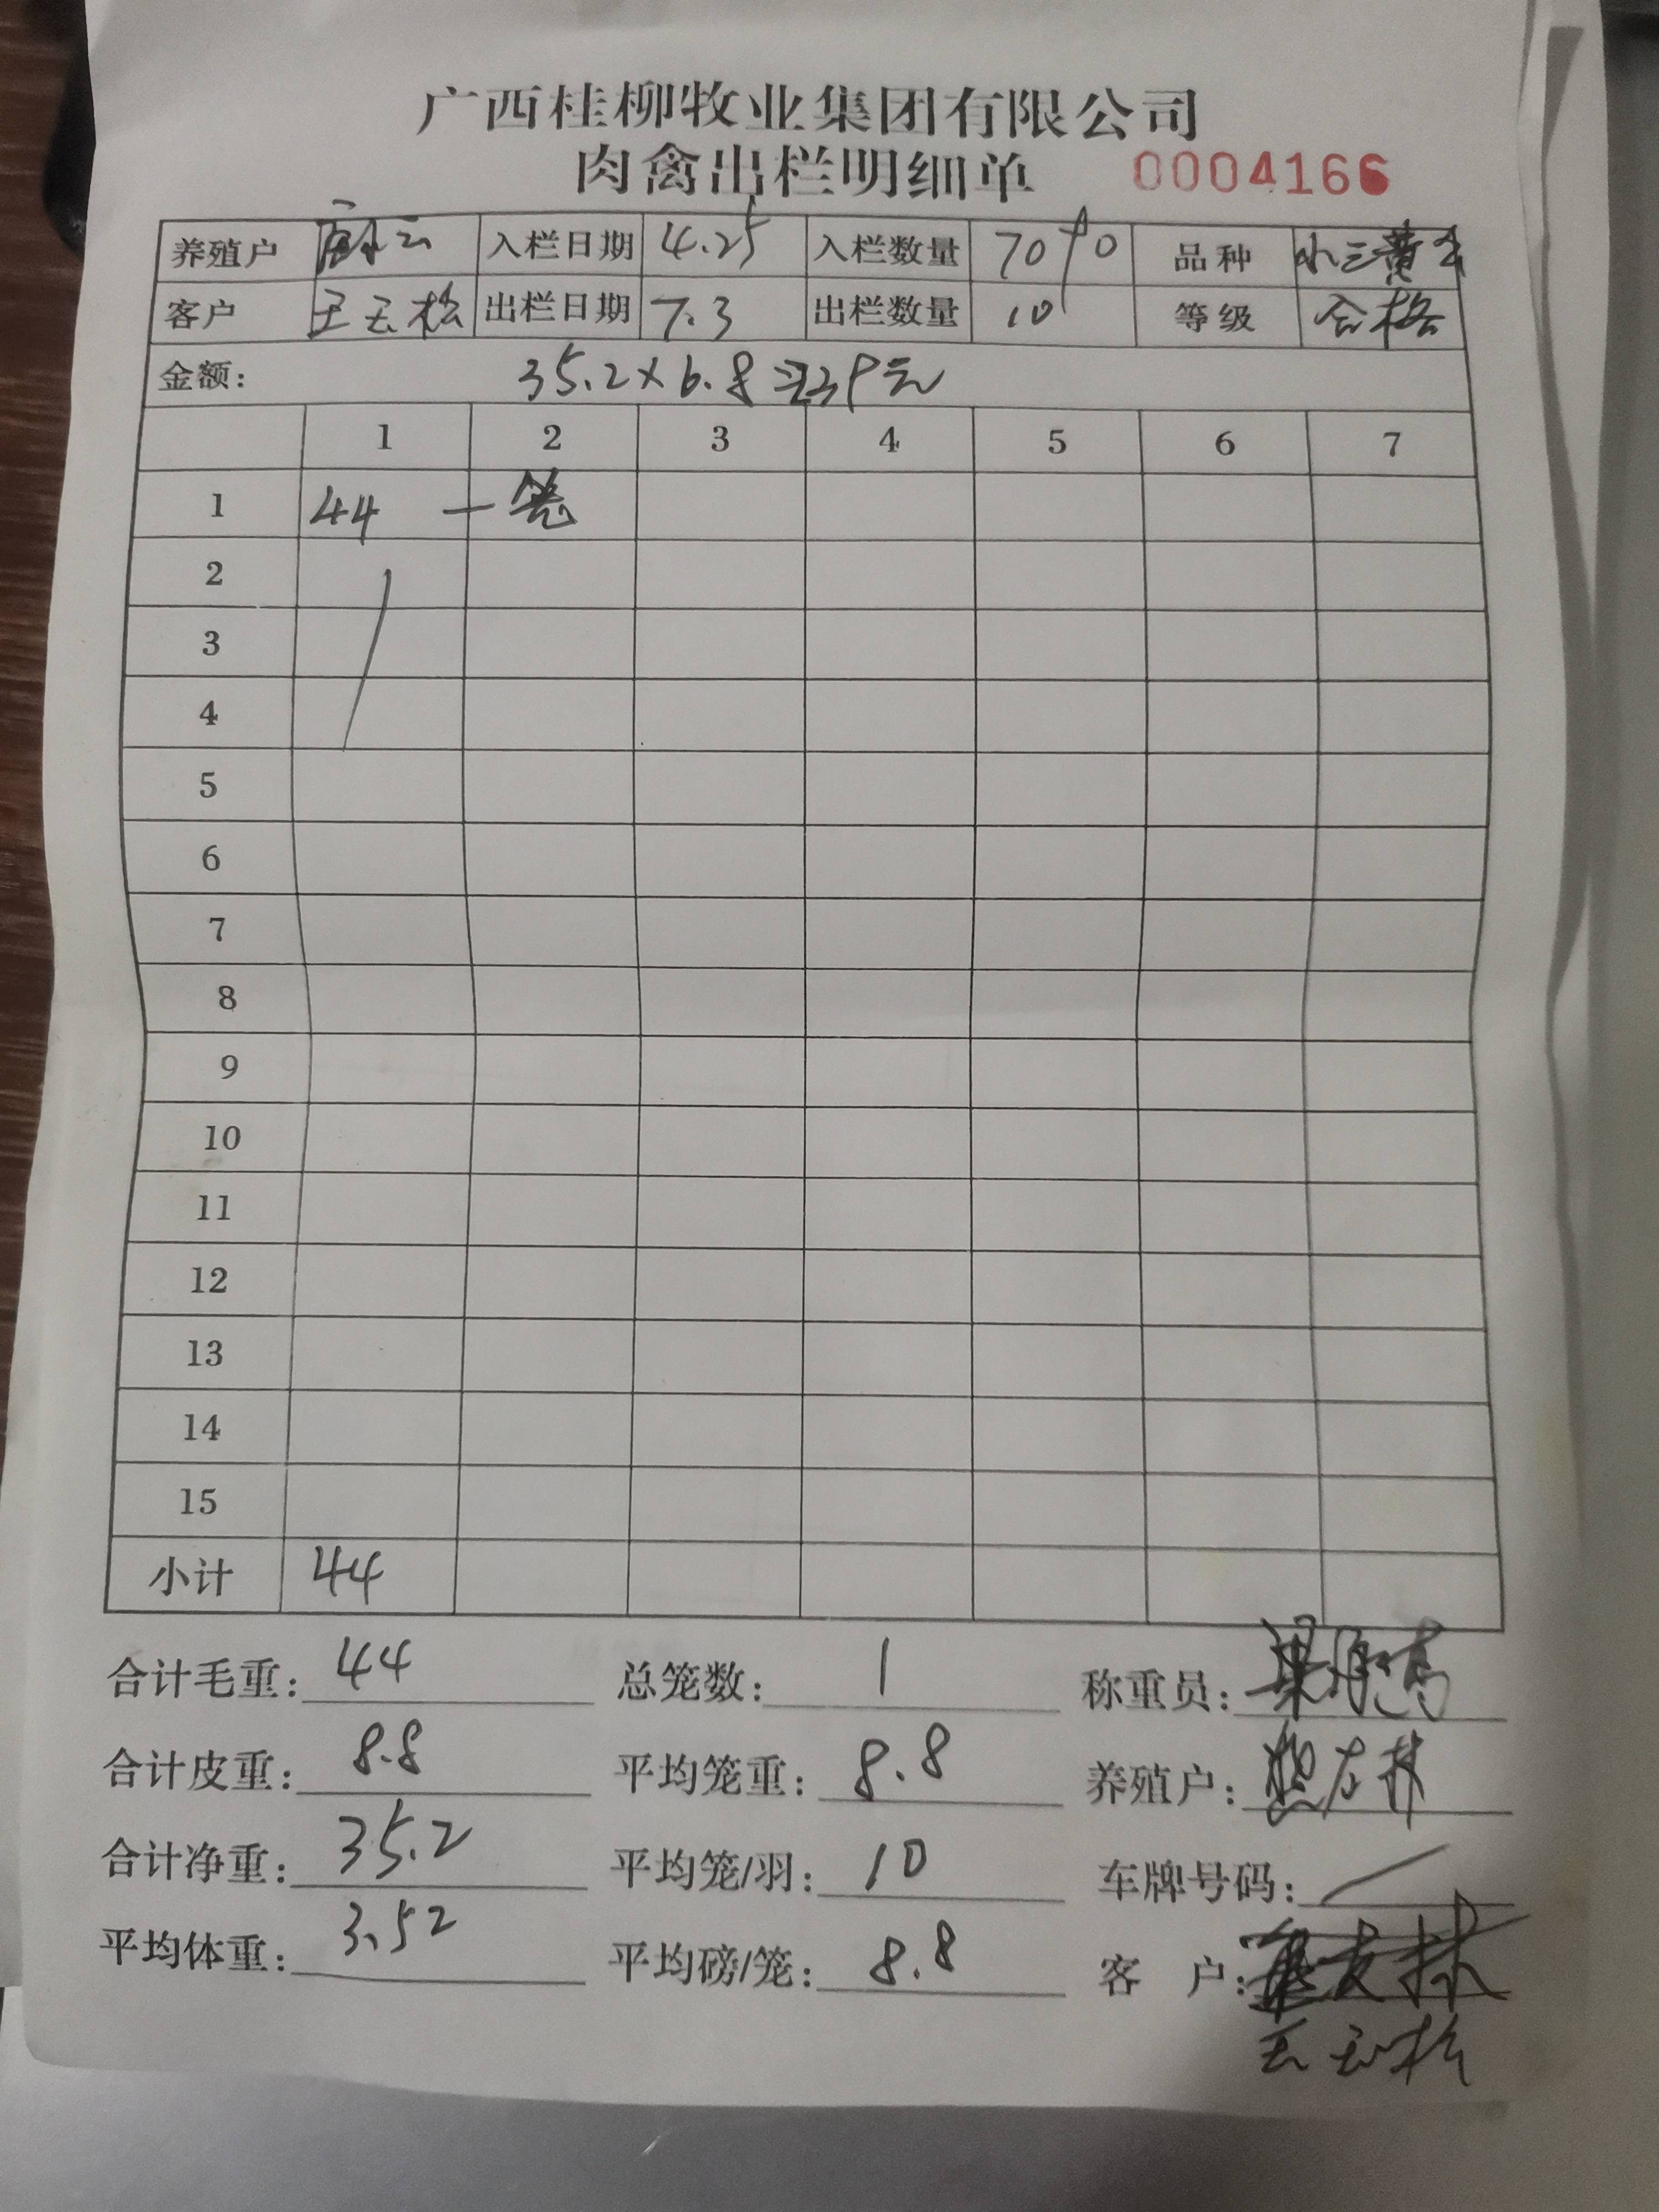 广西桂柳牧业集团有限公司
肉禽出栏明细单 0004166
养殖户 入栏日期 4.25 入栏数量 品种 小三黄
客户 王云松 出栏日期 7.3 出栏数量 10 等级 合格
金额: 35.2×6.8=239元
1 2 3 4 5 6 7
1 44 一笼
2
3
4
5
6
7
8
9
10
11
12
13
14
15
小计 44
合计毛重: 44 总笼数: 1 称重员:
合计皮重: 8.8 平均笼重: 8.8 养殖户:
合计净重: 35.2 平均笼/羽: 10 车牌号码:
平均体重: 3.52 平均磅/笼: 8.8 客 户:
王云松